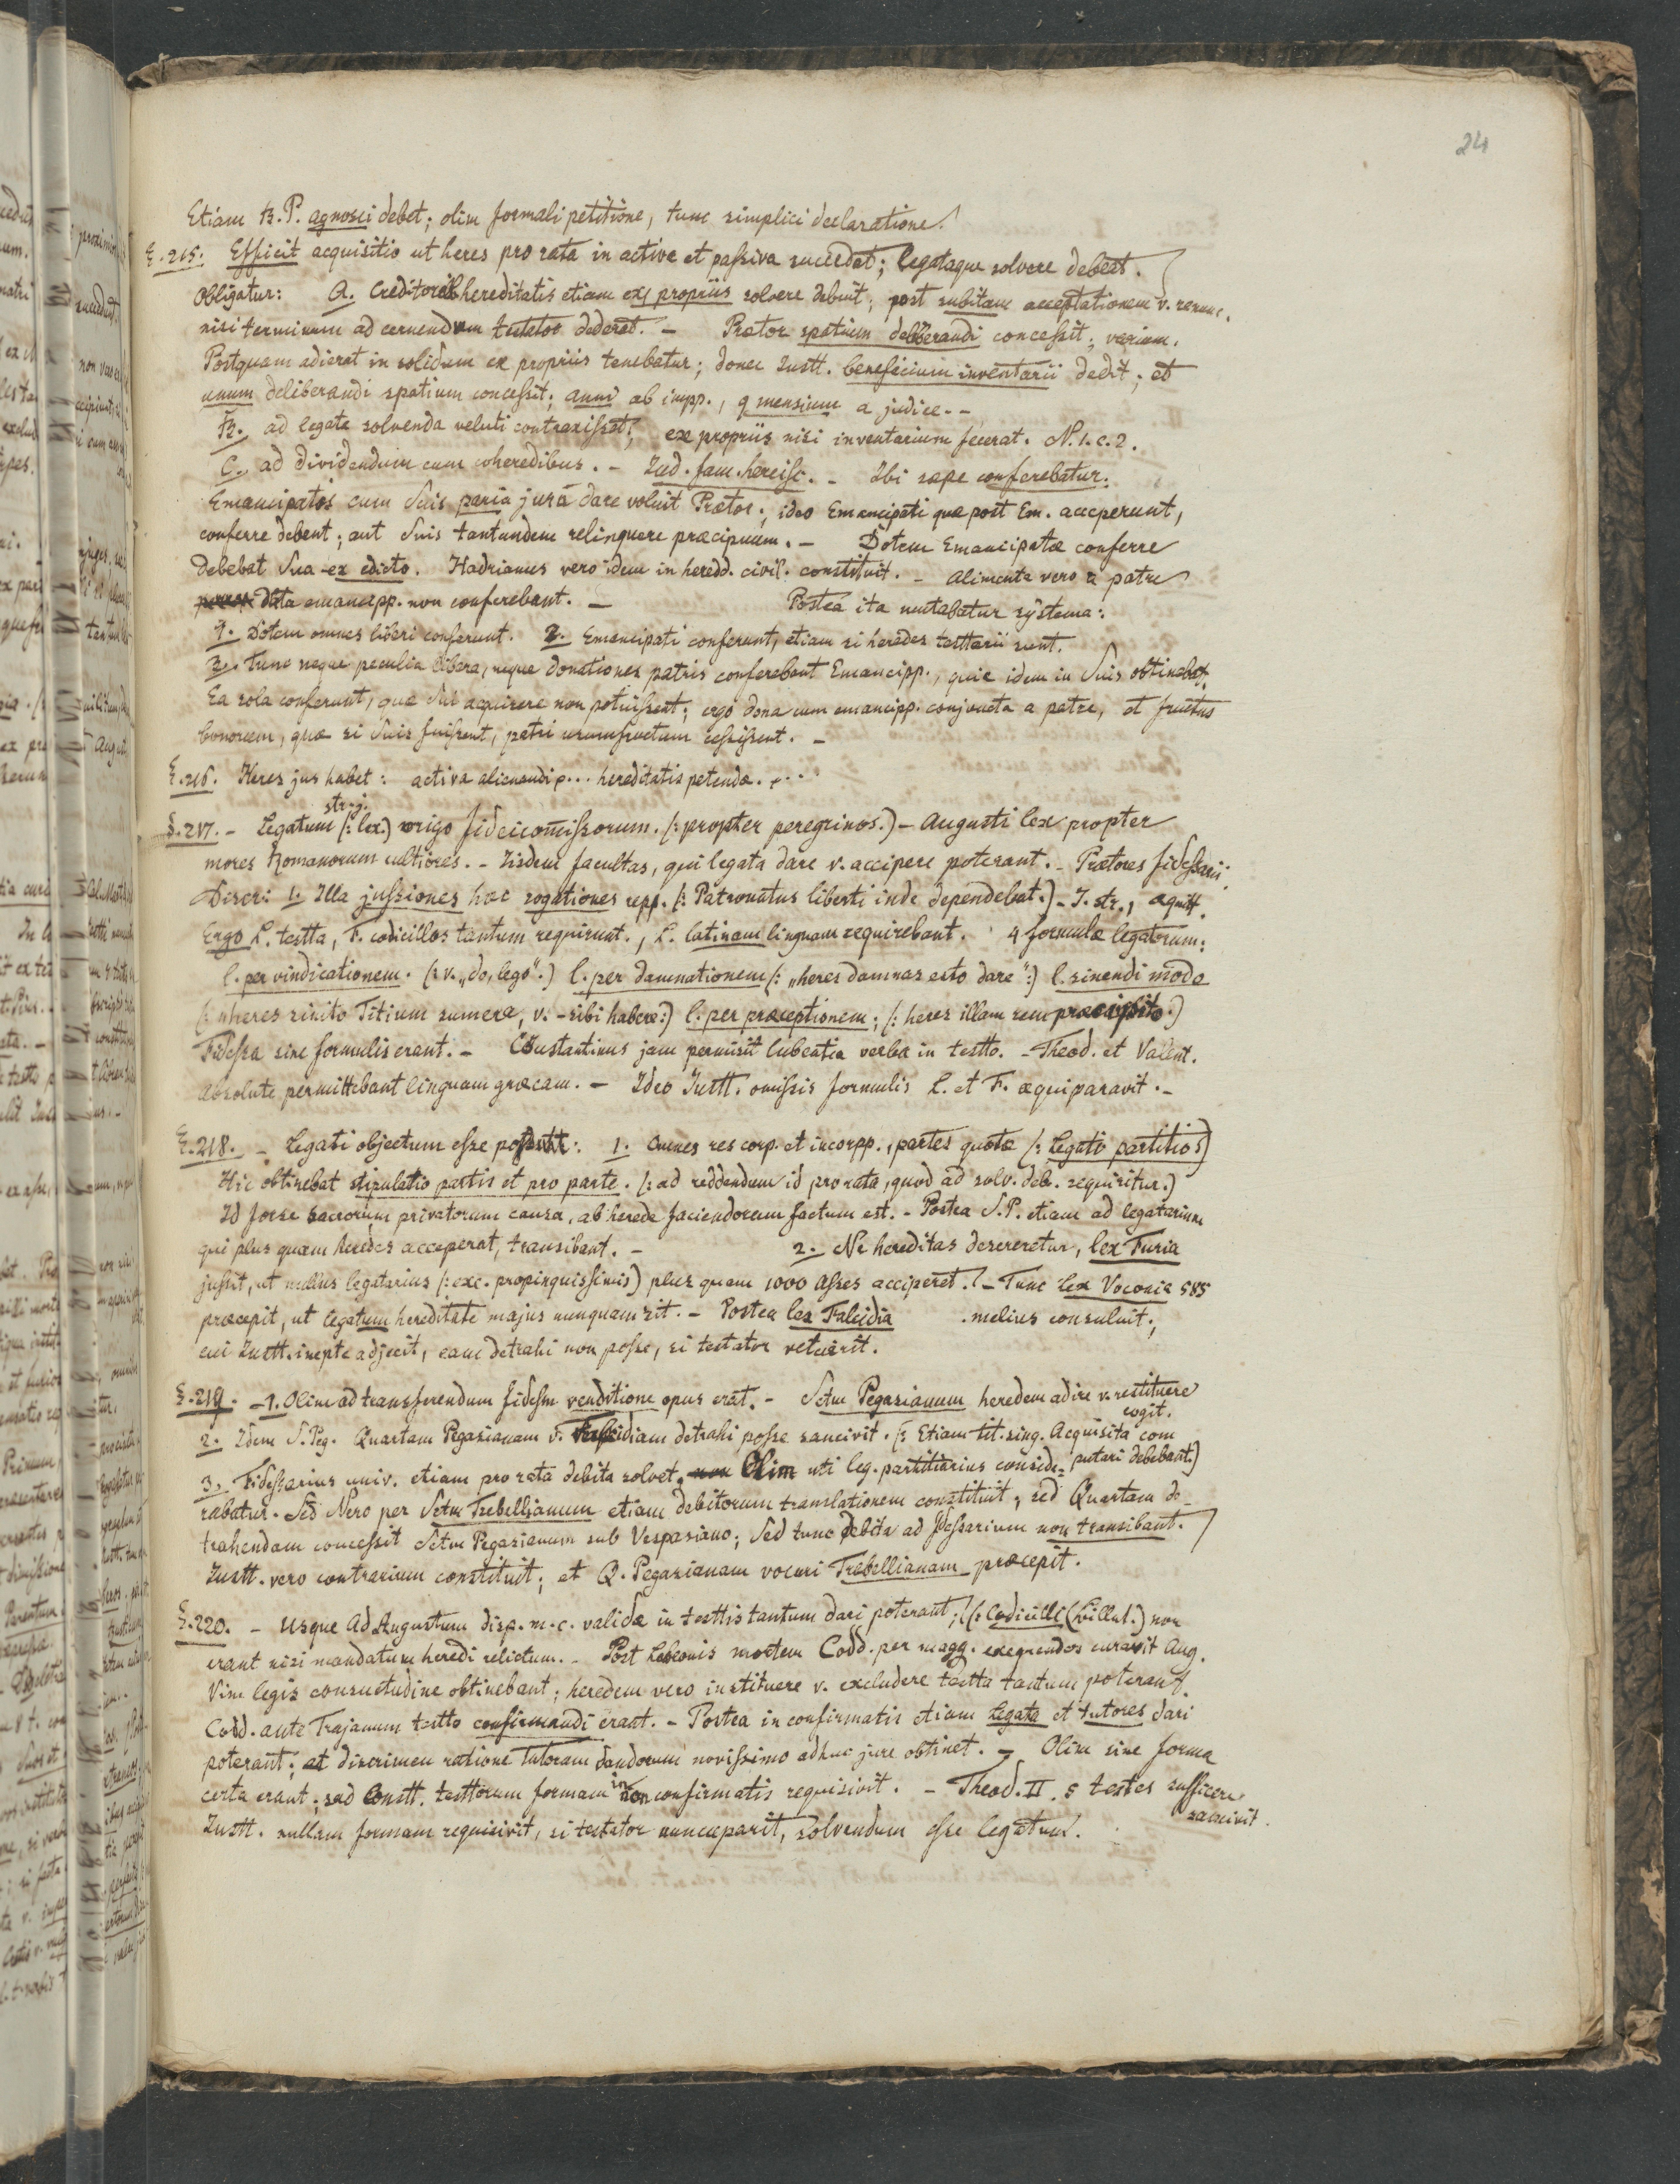 24
Etiam B.P. agnosci debet; olim formali petitione, tunc simplici declaratione.
§.215. Efficit acquisitio ut heres pro rata in activa et passiva succedat; legataque solvere debeat.
Obligatur: A. Creditorib hereditatis etiam ex propriis solvere debuit; post subitam acceptationem v. renunc.
nisi terminum ad cernendum testator dederat. – Prætor spatium deliberandi concessit; varium.
Postquam adierat in solidum ex propriis tenebatur; donec Justt. beneficium inventarii dedit; et
unum deliberandi spatium concessit; anni ab impp., 9 mensium a judice. –
B. ad legata solvenda veluti contraxisset; ex propriis nisi inventarium fecerat. N.1.c.2.
C. ad dividendum cum coheredibus. – Jud. fam. hercisc. – Ibi sæpe conferebatur.
Emancipatos cum Suis paria jura dare voluit Prætor; ideo Emancipati quæ post Em. acceperunt,
conferre debent; aut Suis tantundem relinquere præcipuum. – Dotem Emancipatæ conferre
debebat Sua ex edicto. Hadrianus vero idem in heredd. civil. constituit. – Alimenta vero a patre
data emancipp. non conferebant. – Postea ita mutabatur systema:
1. Dotem omnes liberi conferunt. 2. Emancipati conferunt, etiam si heredes testtarii sunt.
3. tunc neque peculia libera, neque donationes patris conferebant Emancipp., quia idem in Suis obtinebat.
Ea sola conferunt, quæ Sui acquirere non potuissent; ergo dona cum emancipp. conjuncta a patre, et fructus
bonorum, quæ si Suis fuissent, patri usumfructum cessissent. –
§.216. Heres jus habet: activa alienandi p... hereditatis petendæ. ...
str. j.
§.217. – Legatum (: lex.) origo fideicom̄issorum. (: propter peregrinos.) – Augusti lex propter
mores Romanorum cultiores. – Iisdem facultas, qui legata dare v. accipere poterant. – Prætores fidessarii.
Discr: 1: Illa jussiones hæc rogationes repp. (: Patronatus liberti inde dependebat.) – J. str., æquitt.
Ergo L. testta, F. codicillos tantum requirunt., L. latinam linguam requirebant. 4 formulæ legatorum:
l. per vindicationem. (: v. „do, lego“.) l. per damnationem (: „heres damnas esto dare“:) l. sinendi modo
(: „heres sinito Titium sumere, v. – sibi habere:) l. per præceptionem; (: heres illam rem præcipito.:)
Fidessa sine formulis erant. – Constantinus jam permisit lubentia verba in testto. – Theod. et Valent.
absolute permittebant linguam græcam. – Ideo Justt. omissis formulis L. et F. æquiparavit. –
§.218. – Legati objectum esse possunt: 1. Omnes res corp. et incorpp., partes quotæ (: Legati partitios)
Hic obtinebat stipulatio partis et pro parte. (: ad reddendum id pro rata, quod ad solv. deb. requiritur.)
Id forse sacrorum privatorum causa, ab herede faciendorum factum est. – Postea S.P. etiam ad legatarium
qui plus quam heredes acceperat, transibant. – 2. Ne hereditas desereretur, lex Furia
jussit, ut nullus legatarius (: exc. propinquissimis) plus quam 1000 asses acciperet. – Tunc lex Voconia 585
præcepit, ut legatum hereditate majus nunquam sit. – Postea lex Falcidia . melius consuluit;
cui Justt. inepte adjecit, eam detrahi non posse, si testator vetuerit.
§.219. – 1. Olim ad transferendum fidessm venditione opus erat. – Sctm Pegasianum heredem adire v. restituere
cogit.
2. Idem S. Peg. Quartam Pegasianam v. Falcidiam detrahi posse sancivit. (: Etiam tit. sing. Acquisita com
putari debebant.)
3. Fidessarius univ. etiam pro rata debita solvet. Olim uti leg. partitiarius conside-
rabatur. Sed Nero per Sctm Trebellianum etiam debitorum translationem constituit, sed Quartam de-
trahendam concessit Sctm Pegasianum sub Vespasiano; sed tunc debita ad fdessarium non transibant.
Justt. vero contrarium constituit; et Q. Pegasianam vocari Trebellianam præcepit.
§.220. – Usque ad Augustum disp. m. c. validæ in testtis tantum dari poterant; (: Codicilli (billet.) non
erant nisi mandatum heredi relictum. – Post Labeonis mortem Codd. per magg. exequendos curavit Aug.
Vim legis consuetudine obtinebant; heredem vero instituere v. excludere testta tantum poterant.
Codd. ante Trajanum testto confirmandi erant. – Postea in confirmatis etiam legata et tutores dari
poterant; at discrimen ratione tutorum dandorum novissimo adhuc jure obtinet. – Olim sine forma
certa erant; sed Constt. testtorum formam in non confirmatis requisivit. – Theod. II. 5 testes sufficere
sancivit.
Justt. nullam formam requisivit, si testator nuncuparit, solvendum esse legatum.